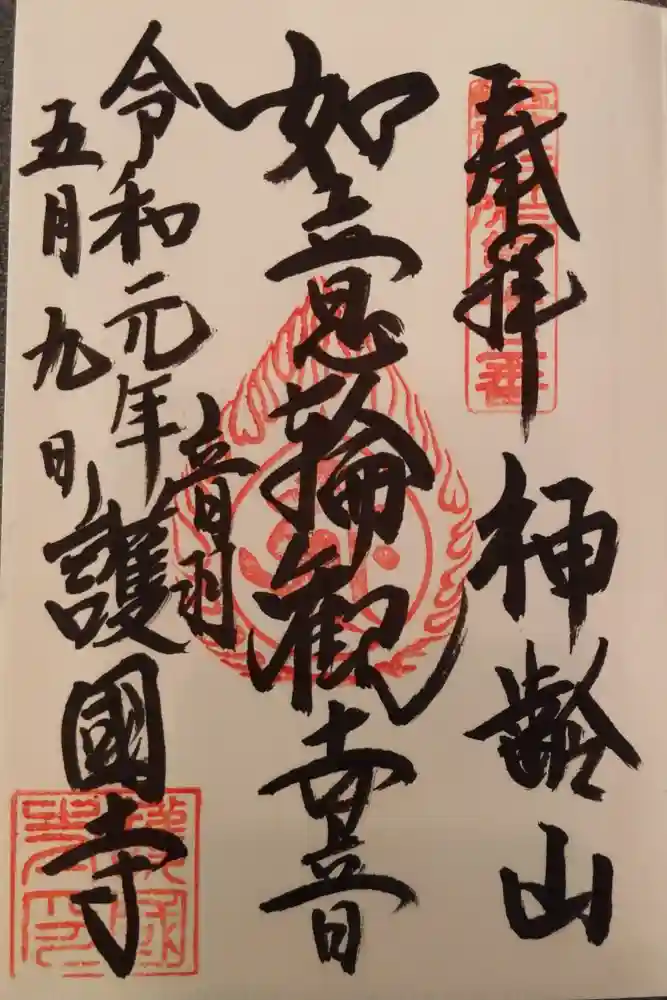 奉拝
神齢山
如意輪観世音
音羽
令和元年
五月九日
護國寺